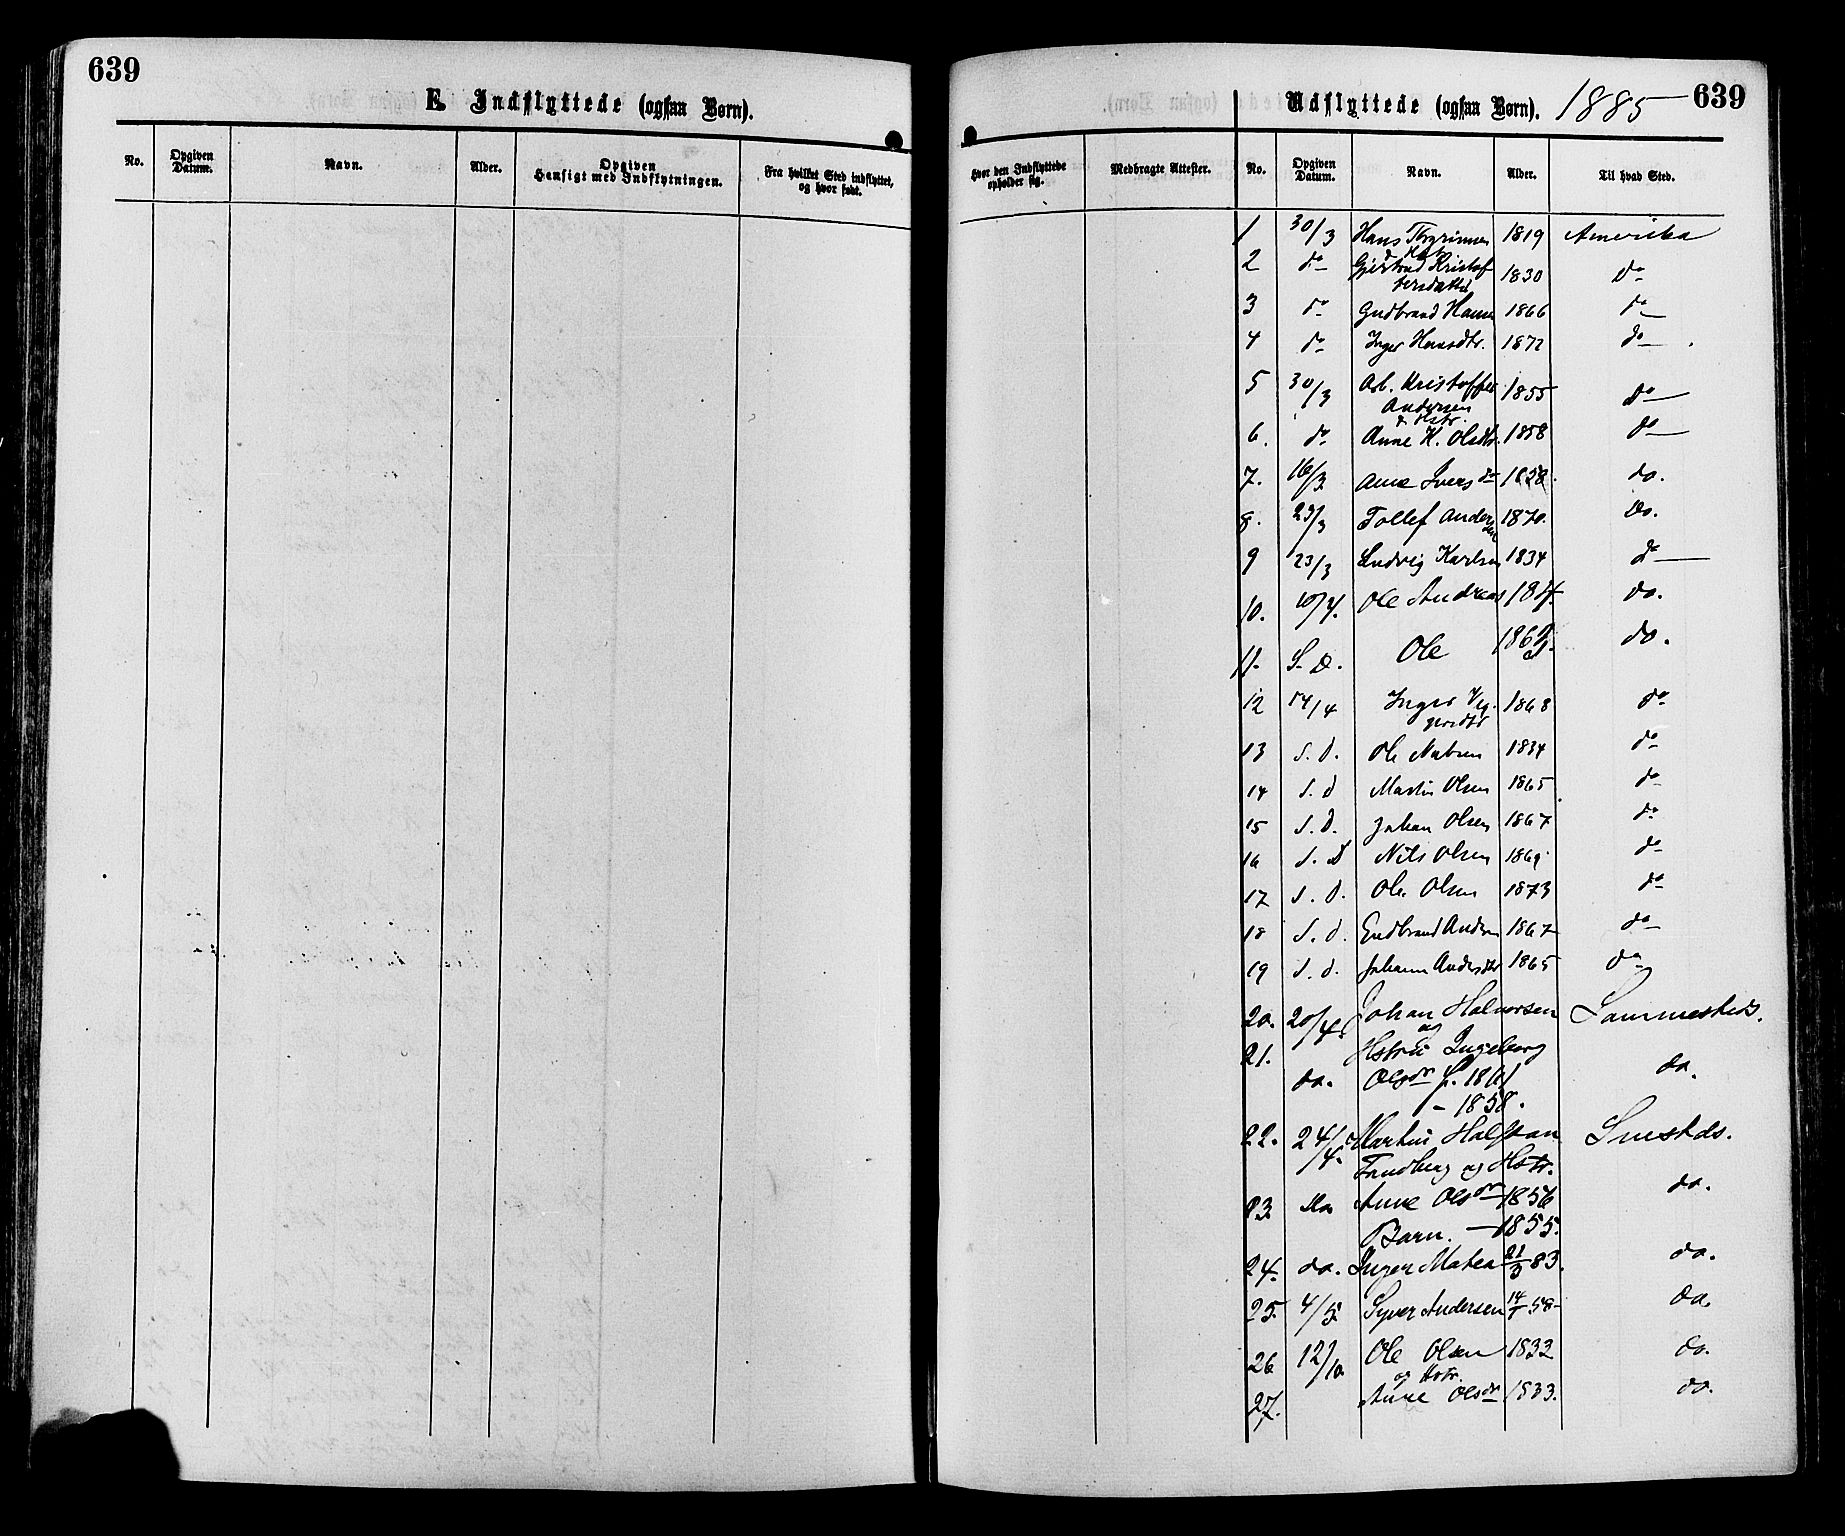 639
E. Indflyttede (ogsaa Børn).
No.
Opgiven Datum.
Navn.
Alder.
Opgiven Hensigt med Indflytningen.
Fra hvilket Sted indflyttet, og hvor født.
639
Udflyttede (ogsaa Børn). 1885
Hvor den Indflyttede opholder sig.
Medbragte Attester.
No.
Opgiven Datum.
Navn.
Alder.
Til hvad Sted.
1 30/3 Hans 1819 Amerika
2 do Gjertrud Kristof
fersdatter 1830 Do
3 do Gudbrand Hansen 1866 do
4 do Inger Hansdtr. 1872 do
5 30/3 Arb. Kristoffer 1855 do
Andersen
& Hstr.
6. do Anne K. Olsdtr. 1858 do
7. 16/3 Anne Ivers da 1828. do.
8. 23/3 Tollef Andersen 1870. Do.
9 23/3 Ludvig Karlsen 1834 do
10. 10/4. Ole Andreas do.
11. S. D. Ole do.
12 14/4 Inger 1868 do
13 S. D. Ole 1834 do
14 S. D Martin Olsen 1865 do
15 S. D. Johan Olsen 1867 do
16 S. D Nils Olsen 1869. do
17 S. D. Ole Olsen 1873 do
18 S. d. Gudbrand Anders 1867 do
19 S. d. Johanne Andersdtr 1865 do
20. 20/4. Johan Halvorsen Sammesteds.
og
21. Hstru Ingeborg
do. Olsdr f. 1861 do.
– 1858.
22. 24/4. Martin Halfstan Smstds.
og Hstr.
23 do Anne Olsdr 1856 do.
Barn. – 1855.
24. do. Inger Matea 21/3 83. do.
25. 4/5. Syver Andersen 14/1 58 do.
26 12/10 Ole Olsen 1832 do.
og Hstr.
27. Anne Olsdr 1833. do.